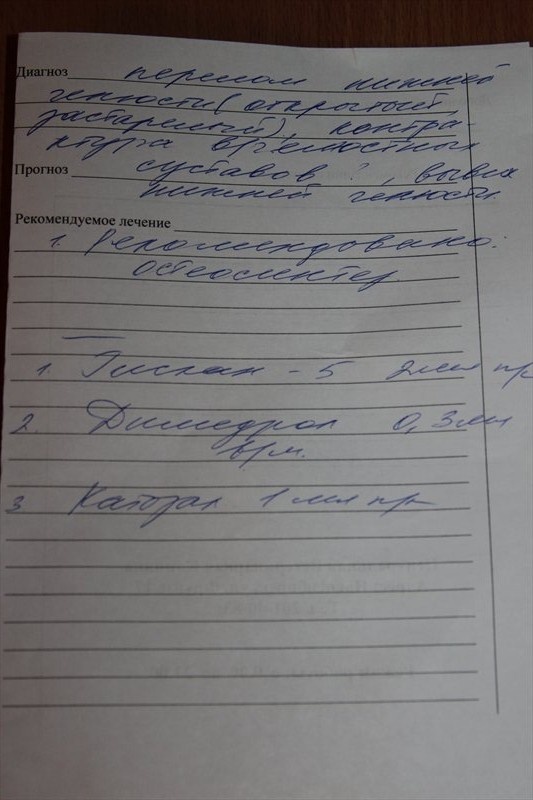 Диагноз перелом нижней
челюсти (открытый,
застарелый), контра-
ктура височностных
Прогноз суставов ?, вывих
нижней челюсти.
Рекомендуемое лечение
1. Рекомендовано:
остеосинтез.
1. - 5 2 мл пр
2. Димедрол 0,3 мл
в/м.
3 Каторал 1 мл пр